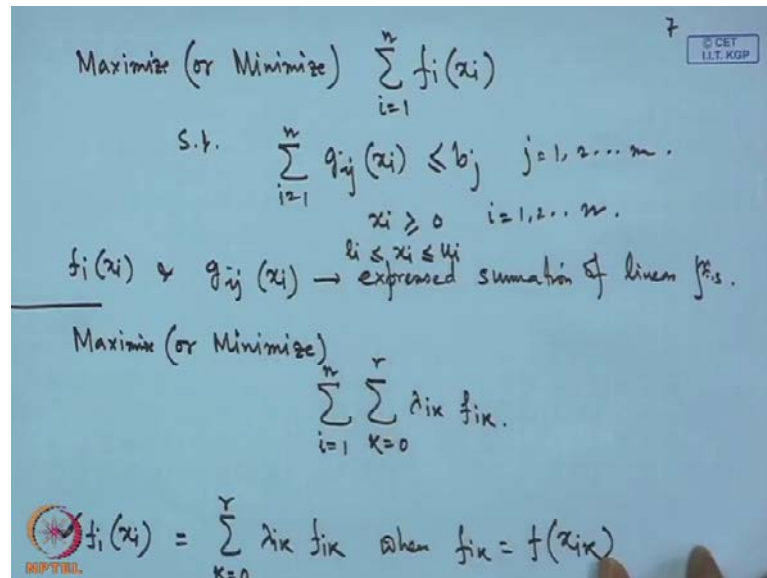 7
© CET
I.I.T. KGP
Maximize (or Minimize) \sum_{i=1}^{n} f_i(x_i)
s.t. \sum_{i=1}^{n} g_{ij}(x_i) ≤ b_j   j=1, 2... m.
x_i ≥ 0   i=1, 2.. n.
l_i ≤ x_i ≤ u_i
f_i(x_i) & g_{ij}(x_i) → expressed summation of linear f^{n}.s.
Maximix (or Minimize)
\sum_{i=1}^{n} \sum_{k=0}^{r} λ_{ik} f_{ik}.
✓ f_i(x_i) = \sum_{k=0}^{r} λ_{ik} f_{ik} when f_{ik} = f(x_{ik})
NPTEL